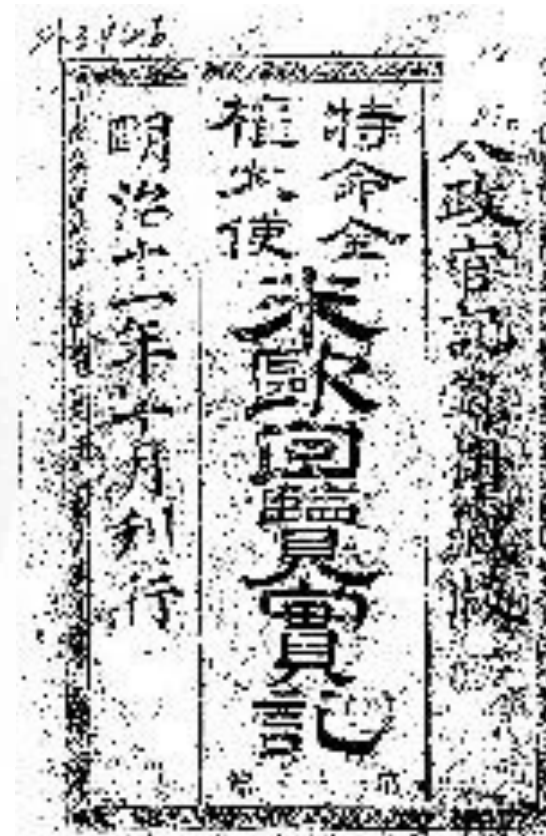 太政官記録掛蔵版
特命全
権大使
米歐回覽實記
明治十一年十月刋行